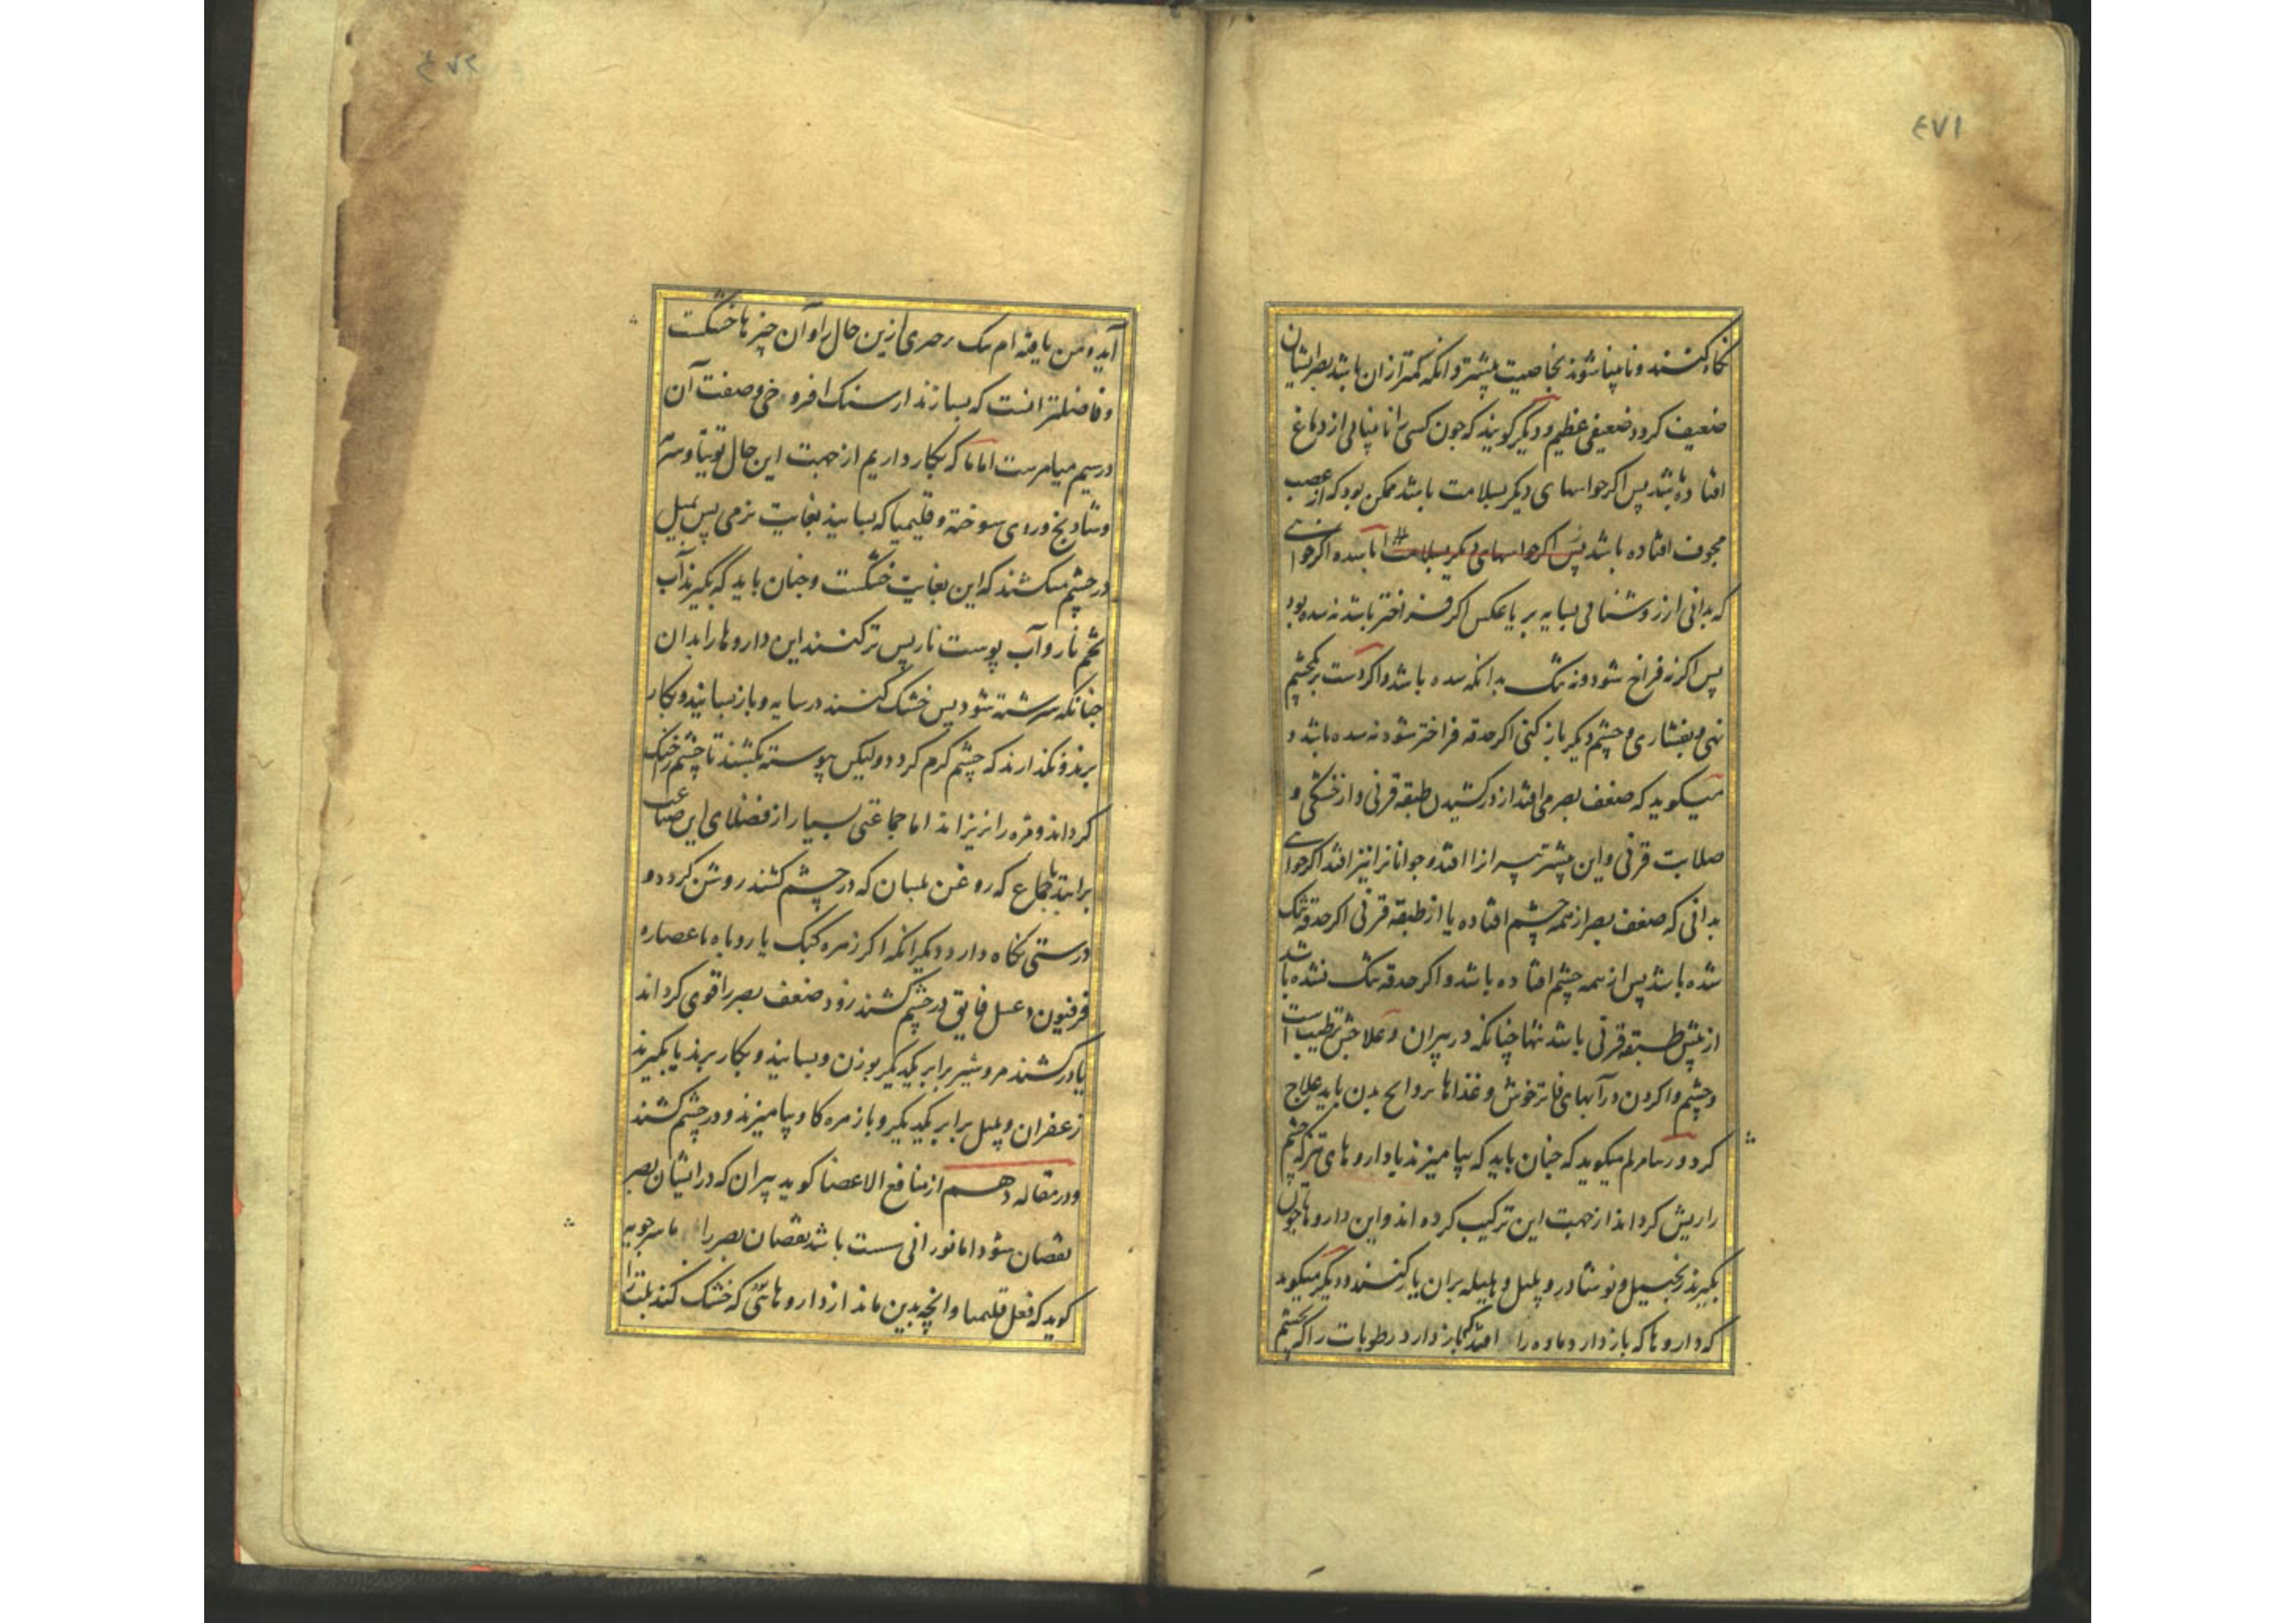 ٤٧١
نکاه کنند و نابینا شوند بخاصیت بیشتر و انکه کمتر از ان باشد بصر ایشان
ضعیف کردد ضعیفی عظیم و دیکر کویند که جون کسی را نابینائی از دماغ
افتاده باشد پس اکر حواسهای دیکر بسلامت باشد ممکن بود که از عصب
مجوف افتاده باشد پس اکر حواسهای دیکر بسلامت اما سده اکر خواهی
که بدانی از روشنائی بسایه بر یا عکس اکر فراختر باشد نه سده بود
پس اکر نه فراخ شود و نه تنک بدانکه سده باشد و اکر دست بر یکچشم
نهی و بفشاری و چشم دیکر باز کنی اکر حدقه فراختر شود نه سده باشد و
میکوید که ضعف بصر می افتد از در کشیدن طبقه قرنی و از خشکی و
صلابت قرنی و این بیشتر پیرانرا افتد و جوانانرا نیز افتد اکر خواهی
بدانی که ضعف بصر از همه چشم افتاده یا از طبقه قرنی اکر حدقه تنک
شده باشد پس از همه چشم افتاده باشد و اکر حدقه تنک نشده باشد
از پیش طبقه قرنی باشد تنها چنانکه در پیران و علاجش ترطیب است
و چشم وا کردن در آبهای فاتر خوش و غذاها بدن باید علاج
کرد و میکوید که جنان باید که بیامیزند با داروهای تیز که چشم
را ریش کرداند از جهت این ترکیب کرده اند و این داروها جون
بکیرند زنجبیل و نوشادر و پلپل و هلیله بران یار کنند و دیکر میکوید
که داروها که باز دارد ماده را افتد که باز دارد رطوبات را که بچشم
آید و من یافته ام یک ازین حال را و آن چیزها خشکست
و فاضلتر انست که بسازند از سنک و صفت آن
در میامرست اما ما که بکار داریم از جهت این حال توتیا و سرمه
و شادنج و روی سوخته و قلیمیا که بسایند بغایت نرمی پس بمیل
در چشم میکشند که این بغایت خشکست و جنان باید که بکیرند آب
تخم نار و آب پوست نار پس تر کنند این داروها را بدان
جنانکه سرشته شود پس خشک کنند در سایه و باز بسایند و بکار
برند و نکذارند که چشم کرم کردد و لیکن پیوسته بکشند تا چشم را خنک
کرداند و قره را نریزاند اما جماعتی بسیار از فضلای این صناعت
برانند باجماع که روغن بلسان که در چشم کشند روشن کردد و
درستی نکاه دارد و دیکر انکه اکر زهره کبک یا روباه با عصاره
فرفیون و عسل فایق در چشم کشند زود ضعف بصر را قوی کرداند
یا در کشند مروشیر برابر یکدیکر بوزن و بسایند و بکار برند یا بکیرند
زعفران و پلپل برابر یکدیکر و با زهره کاو بیامیزند و در چشم کشند
و در مقاله دهم از منافع الاعضا کوید پیران که در ایشان بصر
نقصان شود اما نورانی سست باشد نقصان بصر را ماسرجویه
کوید که فعل قلیمیا و انچه بدین ماند از داروهائی که خشک کند